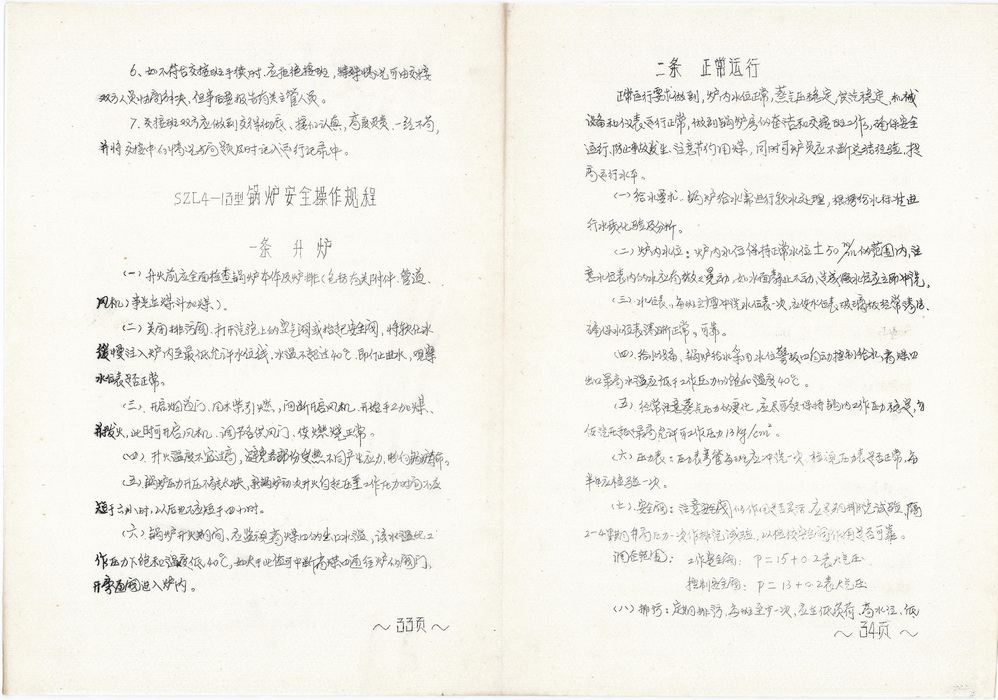 6、如不符合交接班手续时、应拒绝接班，特殊情况可由交接
双方人员协商解决，但事后要报告有关主管人员。
7、交接班双方应做到交得彻底、接得认真，高度负责、一丝不苟，
并将交接中的情况与问题及时记入运行记录中。
SZL4-13型锅炉安全操作规程
一条 升炉
(一)升火前应全面检查锅炉本体及炉排(包括有关附件、管道、
风机)事先在煤斗加煤、)。
(二)关闭排污阀、打开汽包上的空气阀或抬起安全阀，将软化水
缓慢注入炉内至最低允许水位线、水温不超过40℃、即停止进水，观察
水位表是否正常。
(三)、开启烟道门、用木柴引燃，间断开启风机、开始手工加煤、
并拨火，此时可开启风机、调节各供风门、使燃烧正常。
(四)、升火温度不宜过高，避免各部份受热不同产生应力，影响锅炉寿命。
(五)锅炉压力升压不能太快、新锅炉初次升火句起压至工作压力时间不应
短于六小时，以后也不应短于四小时。
(六)锅炉升火期间、应监视省煤口的出口水温，该水温比工
作压力下饱和温度低40℃，如大于此值可中断省煤口通往炉的阀门，
开旁通阀进入炉内。
～33页～
二条 正常运行
正常运行要求做到，炉内水位正常，蒸气压稳定，供汽稳定，机械
设备和仪表运行正常，做到锅炉房的整洁和交接班工作，确保安全
运行、防止事故发生、注意节约用煤，同时司炉员应不断总结经验、提
高运行水平。
(一)给水要求、锅炉给水需进行软水处理，根据给水标准进
行水质化验及分析。
(二)炉内水位：炉内水位保持正常水位±50㎜的范围内，注
意水位表内的水应有微微晃动，如水面静止不动、造成假水位应立即冲洗，
(三)水位表、每班至少要冲洗水位表一次，应使水位表玻璃板经常清洁、
确保水位表清晰正常。可靠。
(四)给水设备、锅炉给水采用水位警报四自动控制给水，省煤四
出口最高水温应低于工作压力的饱和温度40℃。
(五)经常注意蒸气压力的变化、应尽可能保持锅内工作压力稳定，勿
使汽压超过最高允许可工作压力13㎏/cm²。
(六)压力表：压力表弯管每班应冲洗一次、检视压力表是否正常，每
半年应检验一次。
(七)、安全阀：注意安全阀的作用是否灵活、应定期排汽试验，隔
2-4星期升高压力一次作排汽试验，以检校安全阀作用是否可靠。
调压范围： 工作安全阀： P=15+0.2表大气压
控制安全阀： P=13+0.2表大气压
(八)排污：定期排污、每班至少一次、应在低负荷、高水位、低
～34页～